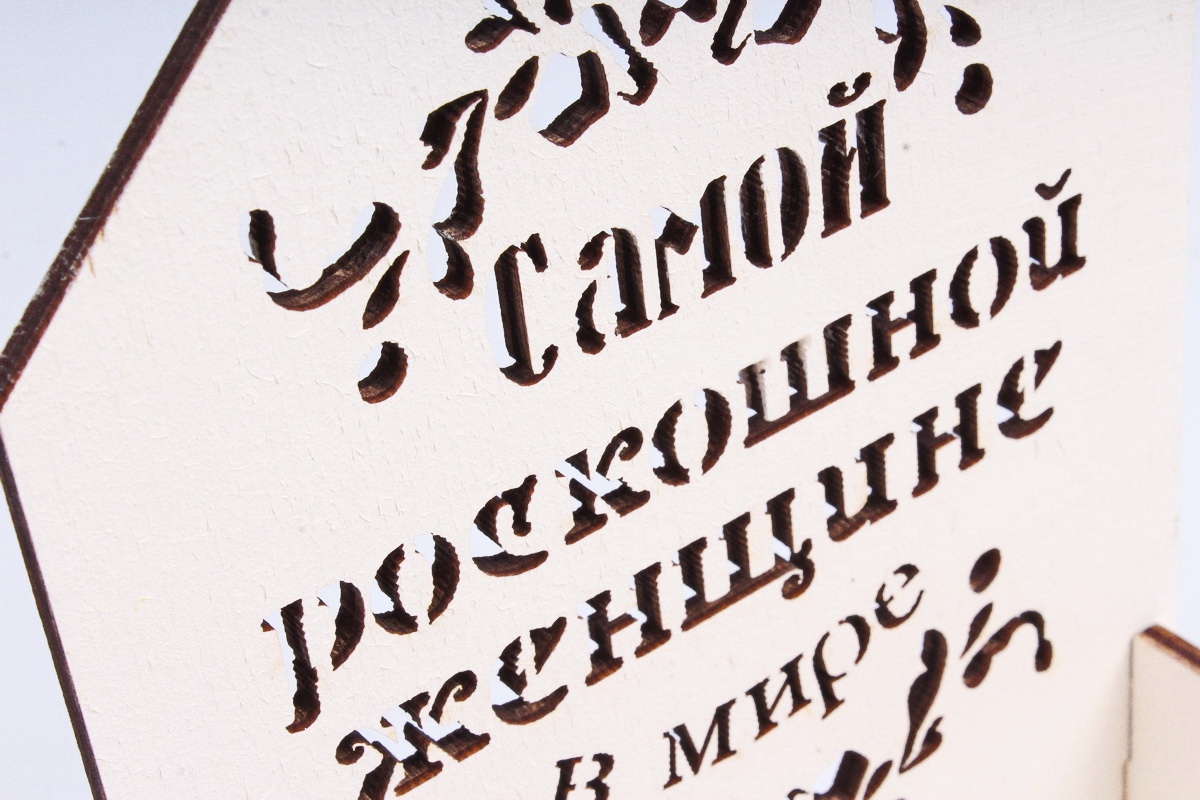 самой
роскошной
женщине
в мире